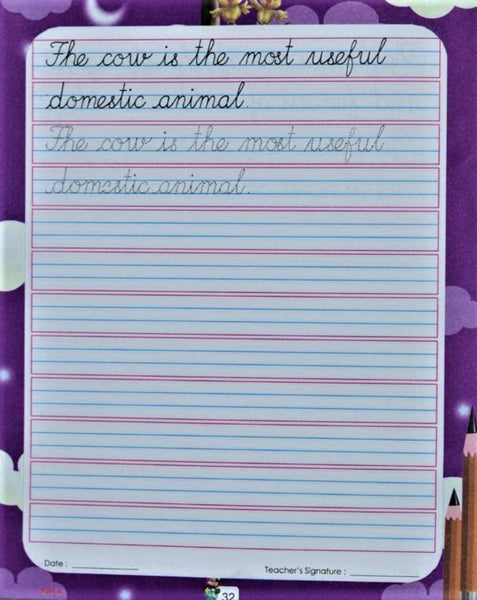 The cow is the most useful
domestic animal.
The cow is the most useful
domestic animal.
Date : ______________
Teacher's Signature : ______________
Part-4
32